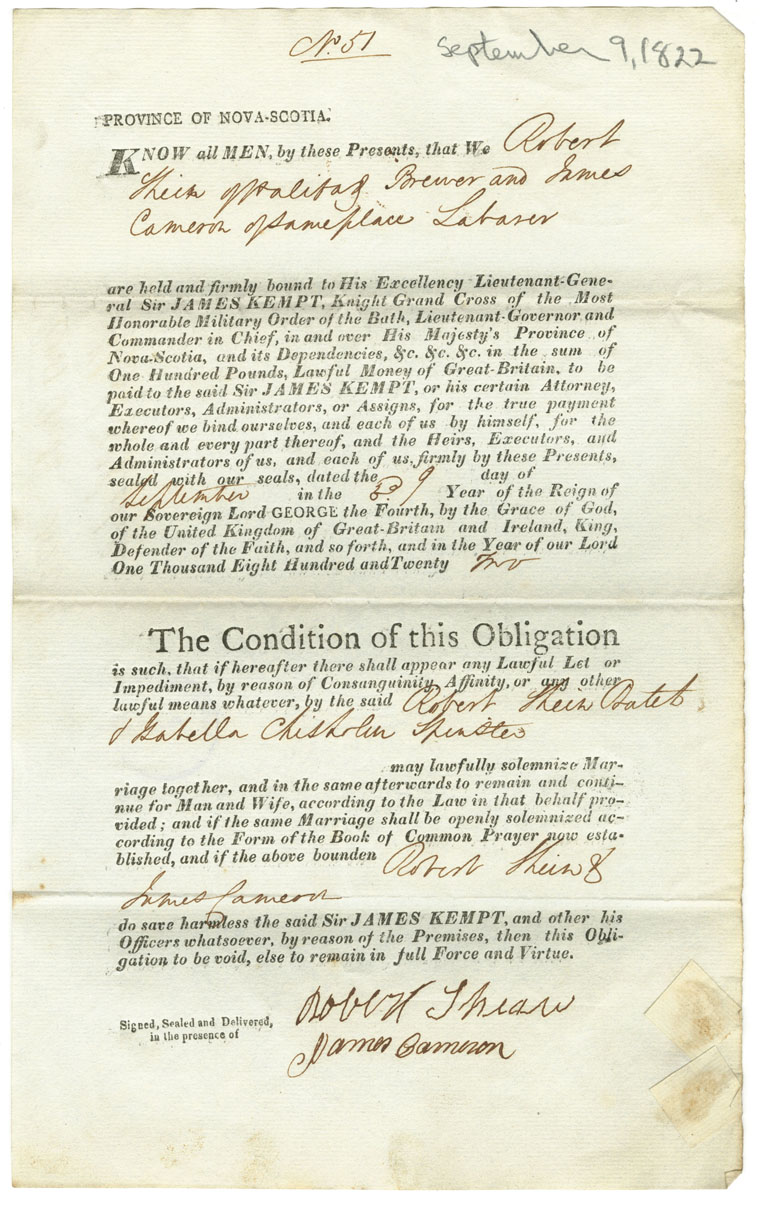 No. 51
September 9, 1822
PROVINCE OF NOVA-SCOTIA.
KNOW all MEN, by these Presents, that We Robert
Shein of Halifax Brewer and James
Cameron of same place Labarer
are held and firmly bound to His Excellency Lieutenant-Gene-
ral Sir JAMES KEMPT, Knight Grand Cross of the Most
Honorable Military Order of the Bath, Lieutenant-Governor and
Commander in Chief, in and over His Majesty's Province of
Nova-Scotia, and its Dependencies, &c. &c. &c. in the sum of
One Hundred Pounds, Lawful Money of Great-Britain, to be
paid to the said Sir JAMES KEMPT, or his certain Attorney,
Executors, Administrators, or Assigns, for the true payment
whereof we bind ourselves, and each of us by himself, for the
whole and every part thereof, and the Heirs, Executors, and
Administrators of us, and each of us, firmly by these Presents,
sealed with our seals, dated the 9 day of
September in the 3d Year of the Reign of
our Sovereign Lord GEORGE the Fourth, by the Grace of God,
of the United Kingdom of Great-Britain and Ireland, King,
Defender of the Faith, and so forth, and in the Year of our Lord
One Thousand Eight Hundred and Twenty Two
The Condition of this Obligation
is such, that if hereafter there shall appear any Lawful Let or
Impediment, by reason of Consanguinity, Affinity, or any other
lawful means whatever, by the said Robert Shein Batch
& Isabella Chisholm Spinster
may lawfully solemnize Mar-
riage together, and in the same afterwards to remain and conti-
nue for Man and Wife, according to the Law in that behalf pro-
vided; and if the same Marriage shall be openly solemnized ac-
cording to the Form of the Book of Common Prayer now esta-
blished, and if the above bounden Robert Shein &
James Cameron
do save harmless the said Sir JAMES KEMPT, and other his
Officers whatsoever, by reason of the Premises, then this Obli-
gation to be void, else to remain in full Force and Virtue.
Signed, Sealed and Delivered,
in the presence of
Robert
James Cameron